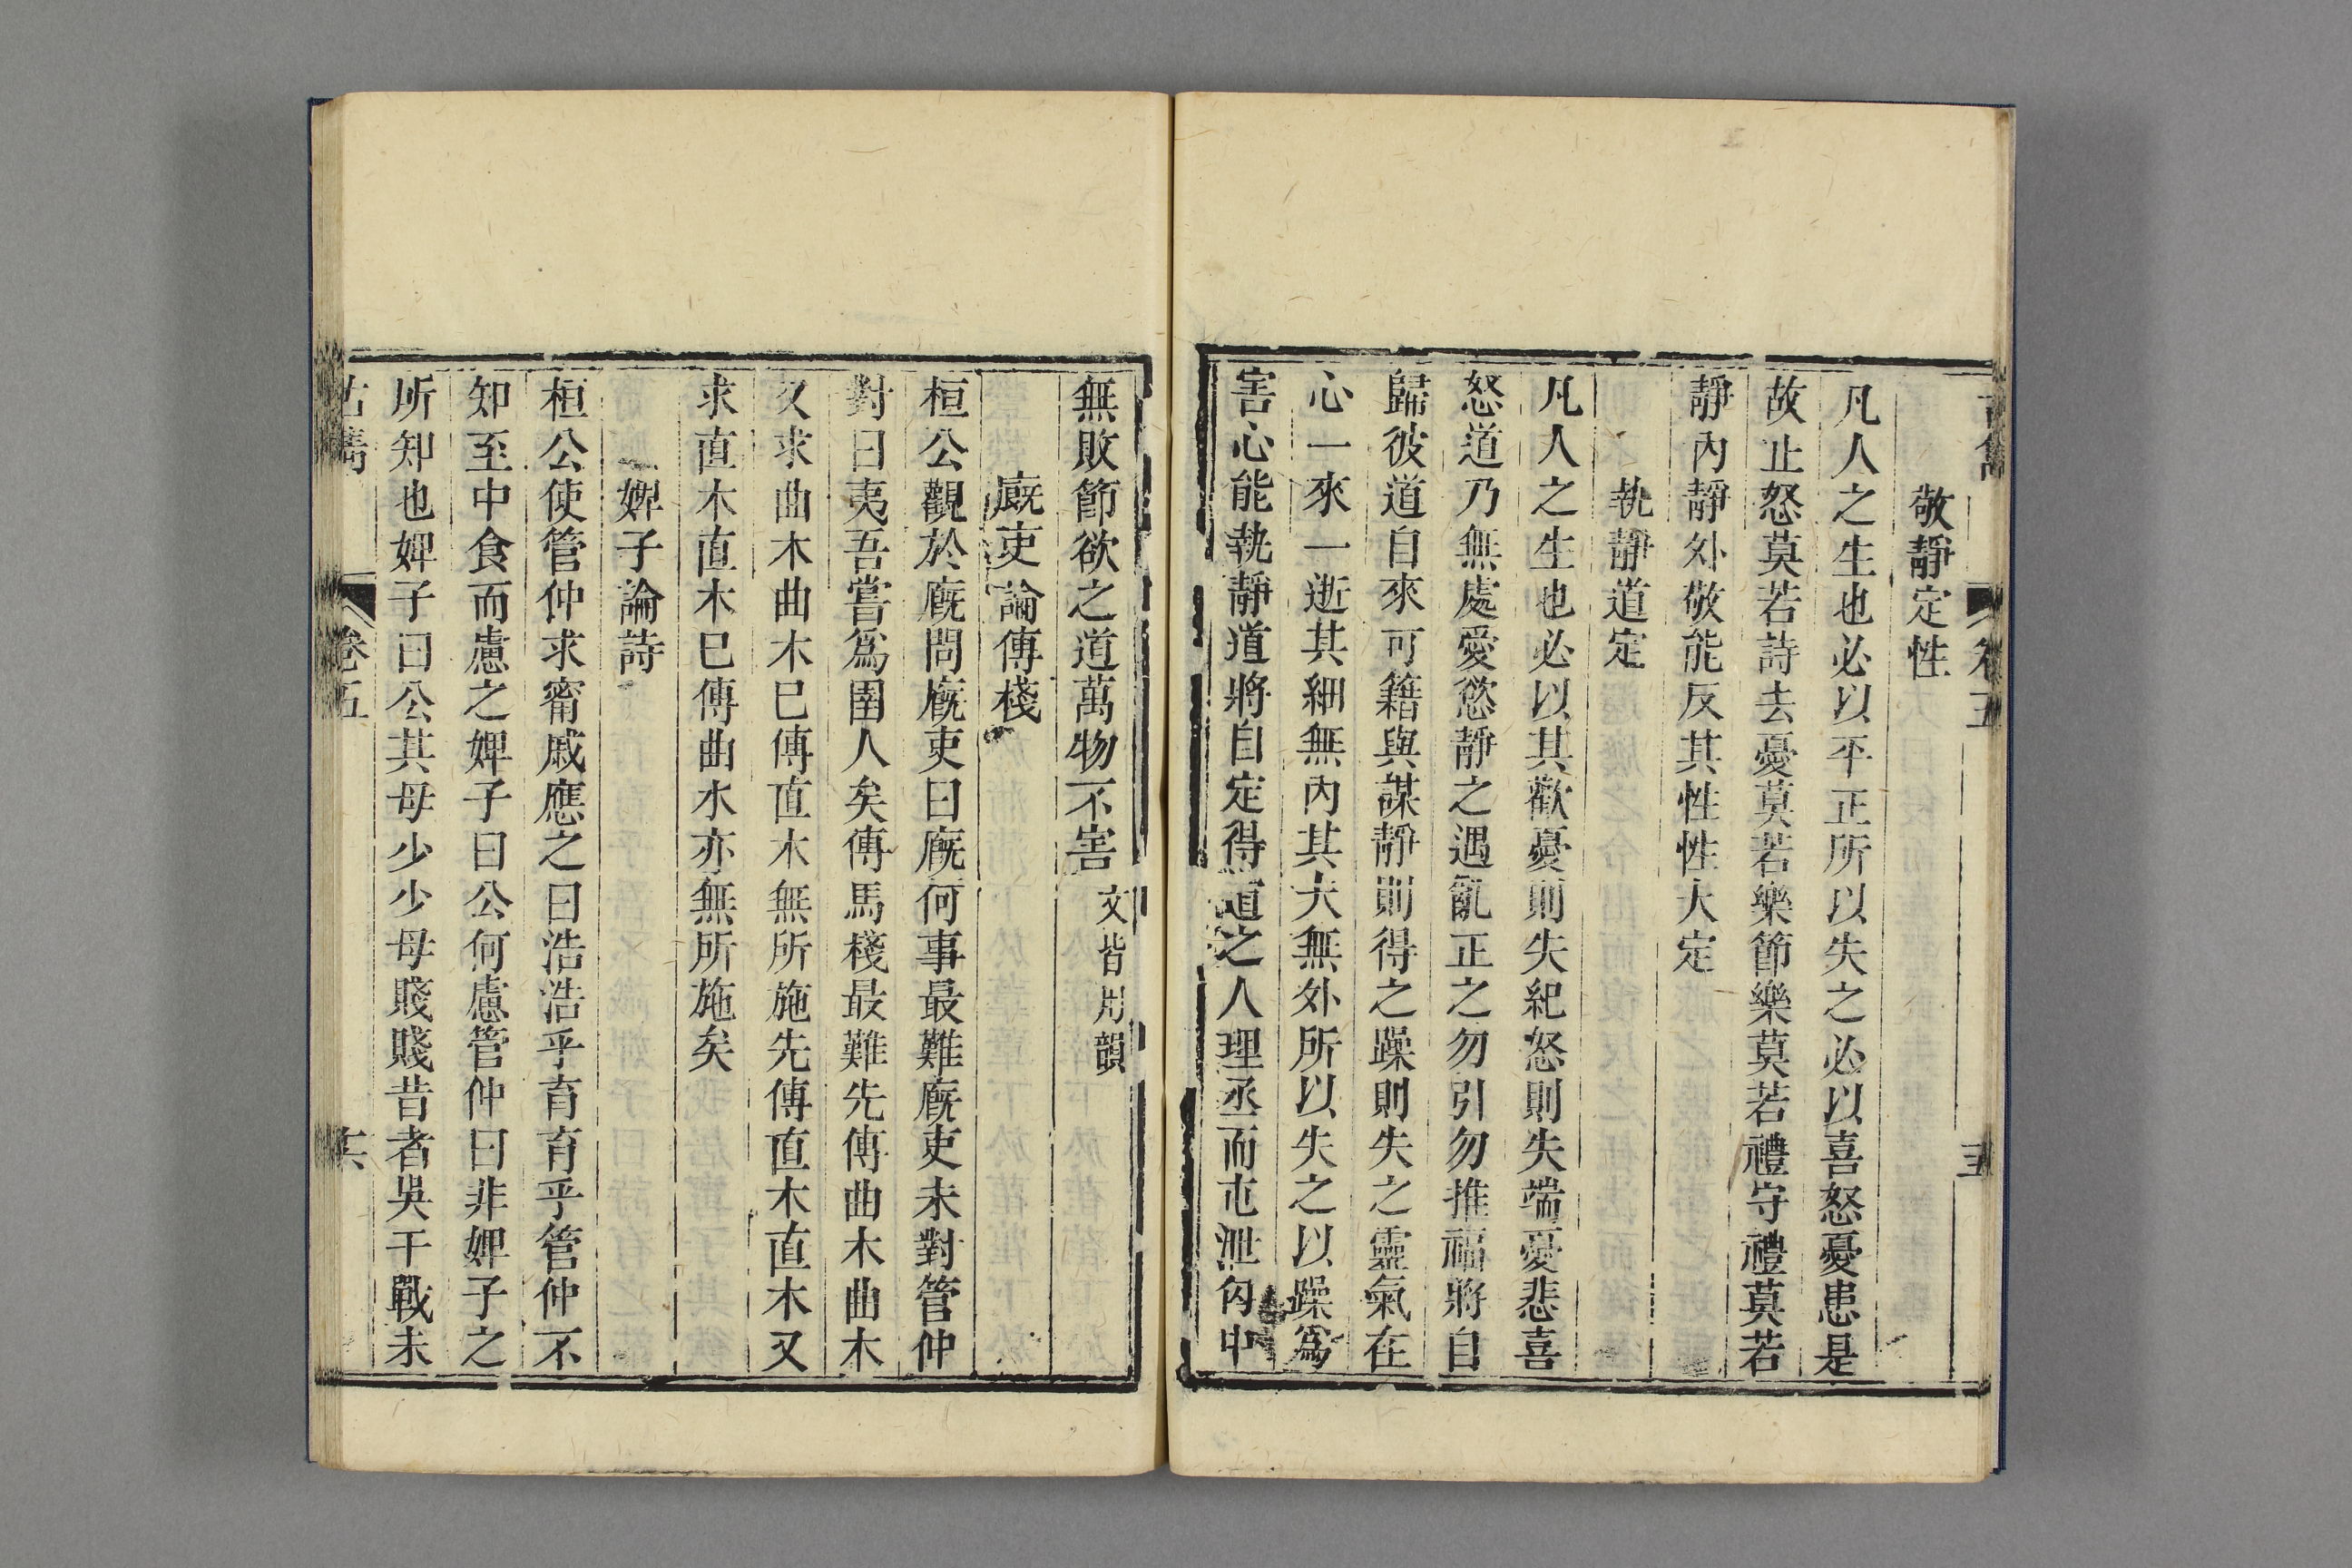 敬靜定性
凡人之生也必以平正所以失之必以喜怒憂患是
故止怒莫若詩去憂莫若樂節樂莫若禮守禮莫若
靜內靜外敬能反其性性大定
執靜道定
凡人之生也必以其歡憂則失紀怒則失端憂悲喜
怒道乃無處愛慾靜之遇亂正之勿引勿推福將自
歸彼道自來可籍與謀靜則得之躁則失之靈氣在
心一來一逝其細無內其大無外所以失之以躁爲
害心能執靜道將自定得道之人理丞而屯泄匈中
無敗節欲之道萬物不害 文皆用韻
廄吏論傅棧
桓公觀於廄問廄吏曰廄何事最難廄吏未對管仲
對曰夷吾嘗爲圉人矣傅馬棧最難先傅曲木曲木
又求曲木曲木巳傅直木無所施先傅直木直木又
求直木直木巳傅曲木亦無所施矣
婢子論詩
桓公使管仲求甯戚應之曰浩浩乎育育乎管仲不
知至中食而慮之婢子曰公何慮管仲曰非婢子之
所知也婢子曰公其毋少少毋賤賤昔者吳干戰未
卷五